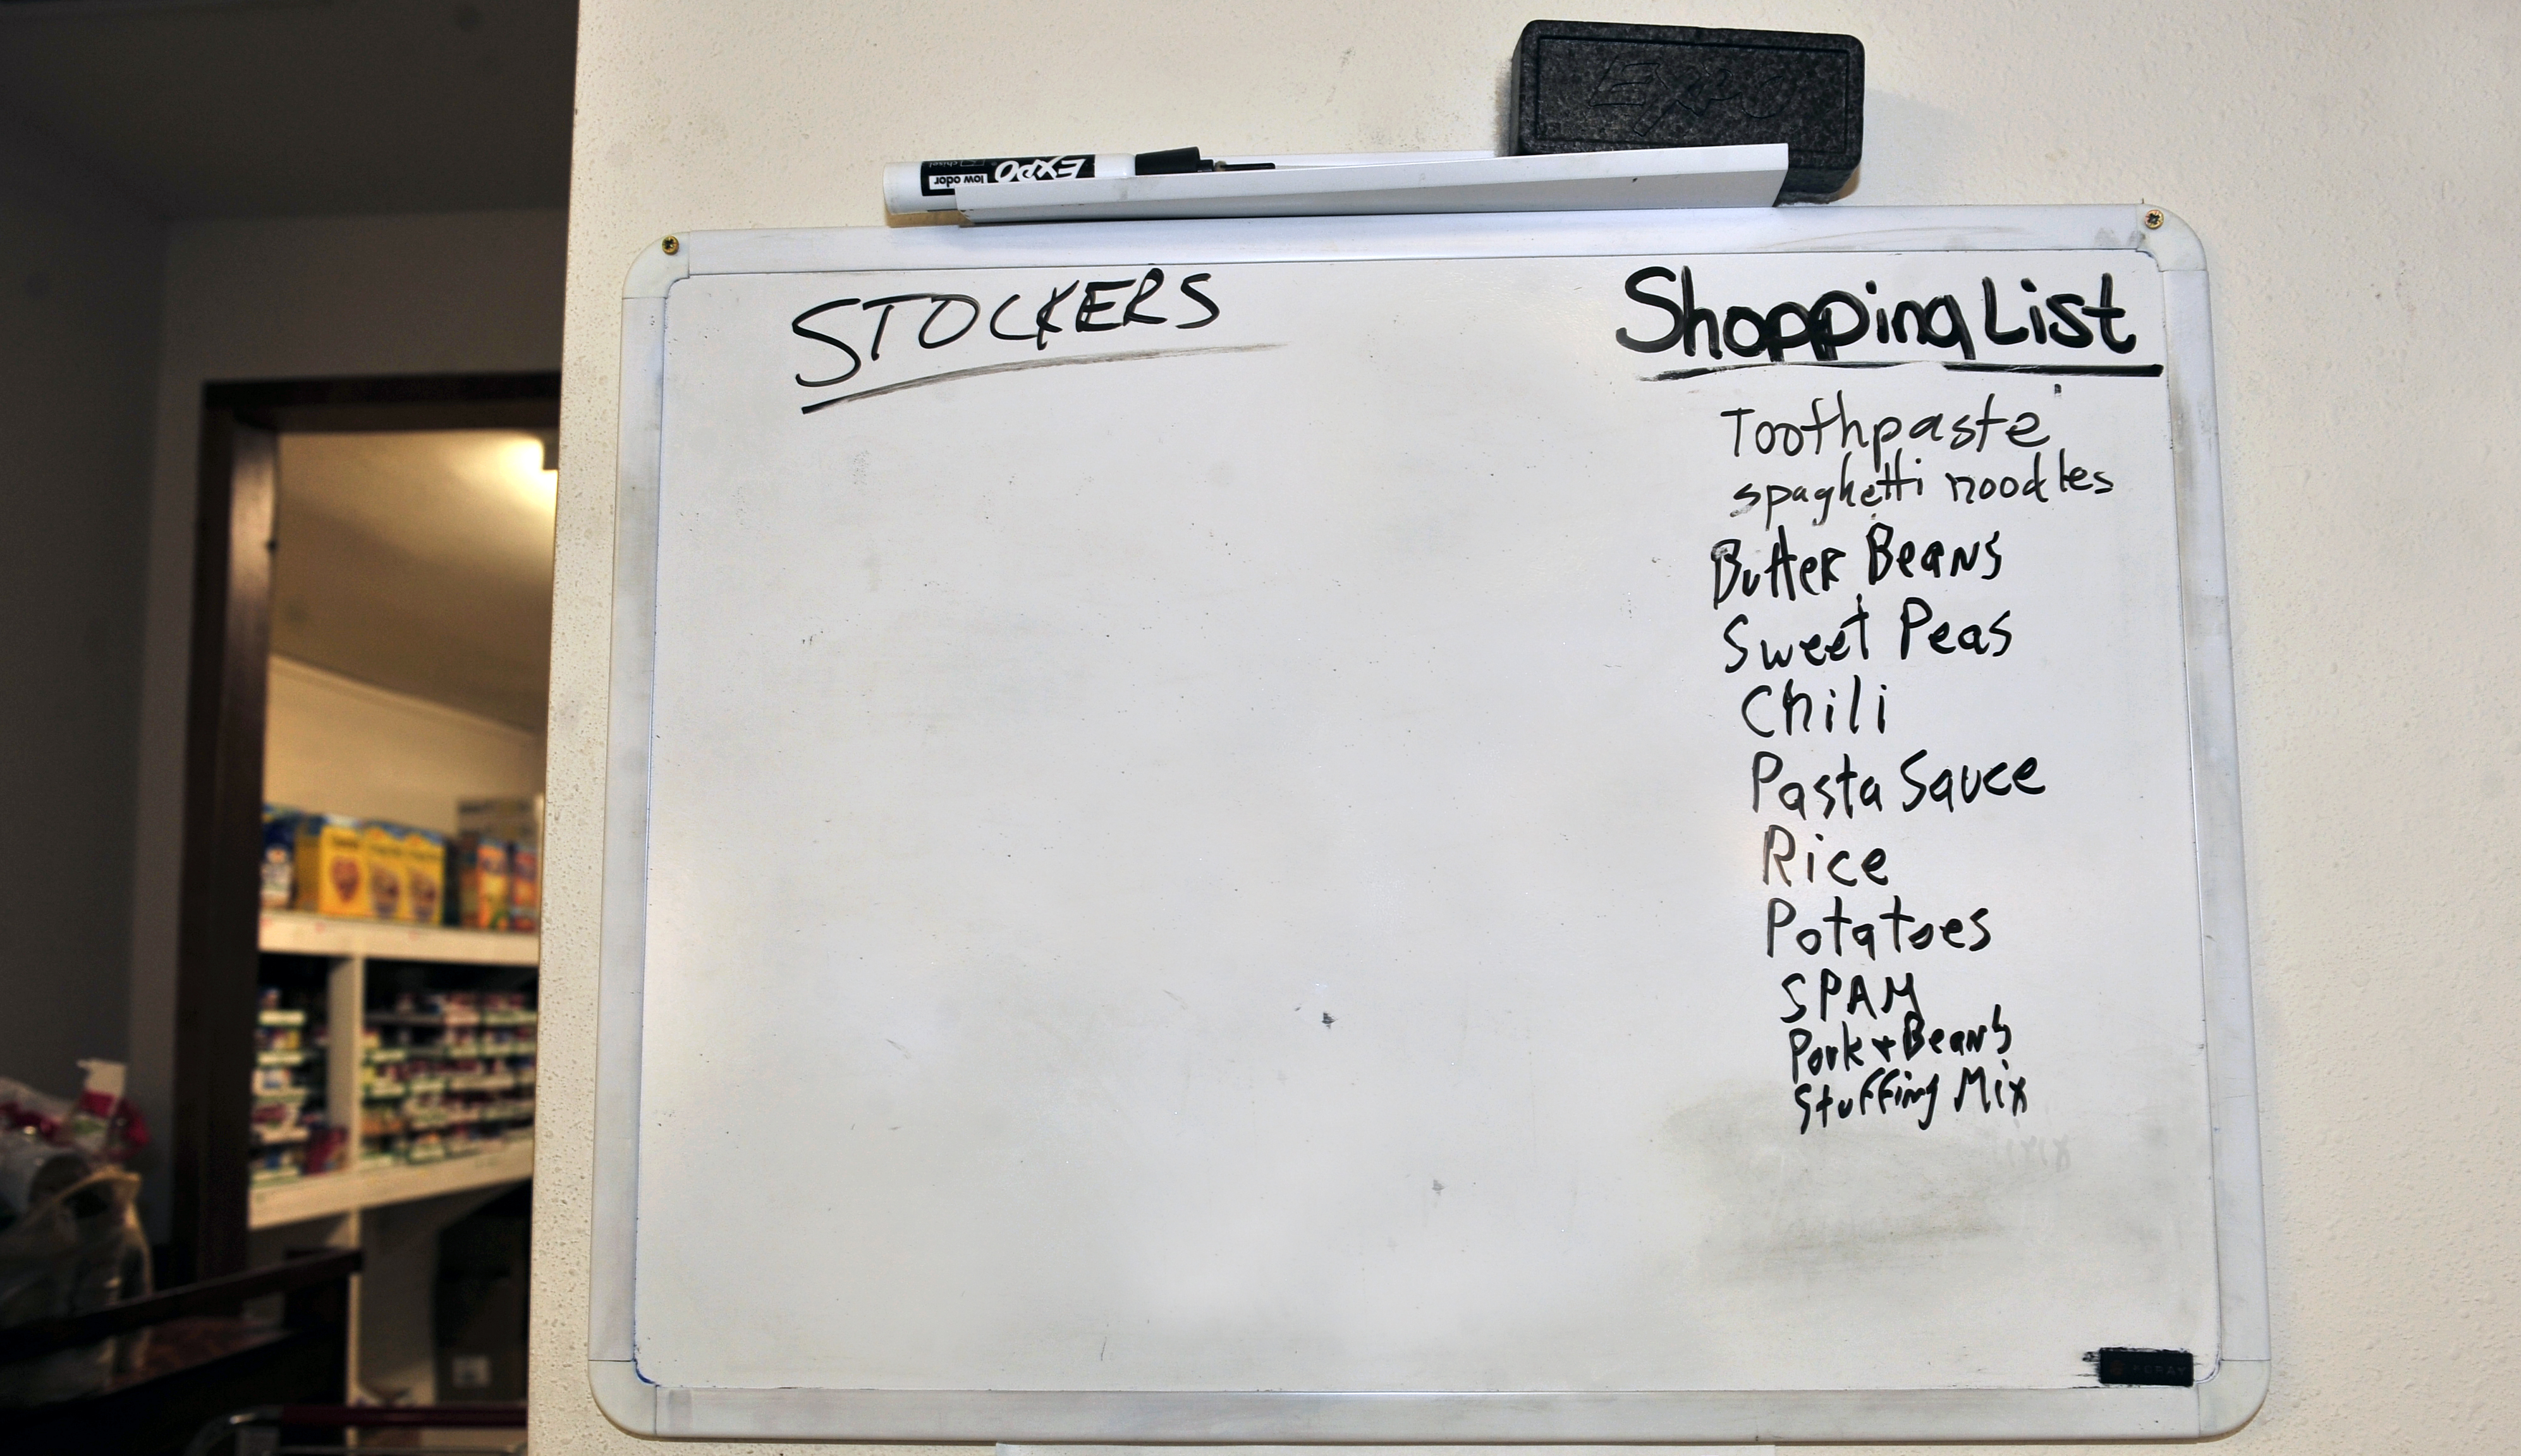 Expo
EXPO
low odor
chisel
STOCKERS
Shopping List
Toothpaste
spaghetti noodles
Butter Beans
Sweet Peas
Chili
Pasta Sauce
Rice
Potatoes
SPAM
Pork + Beans
Stuffing Mix